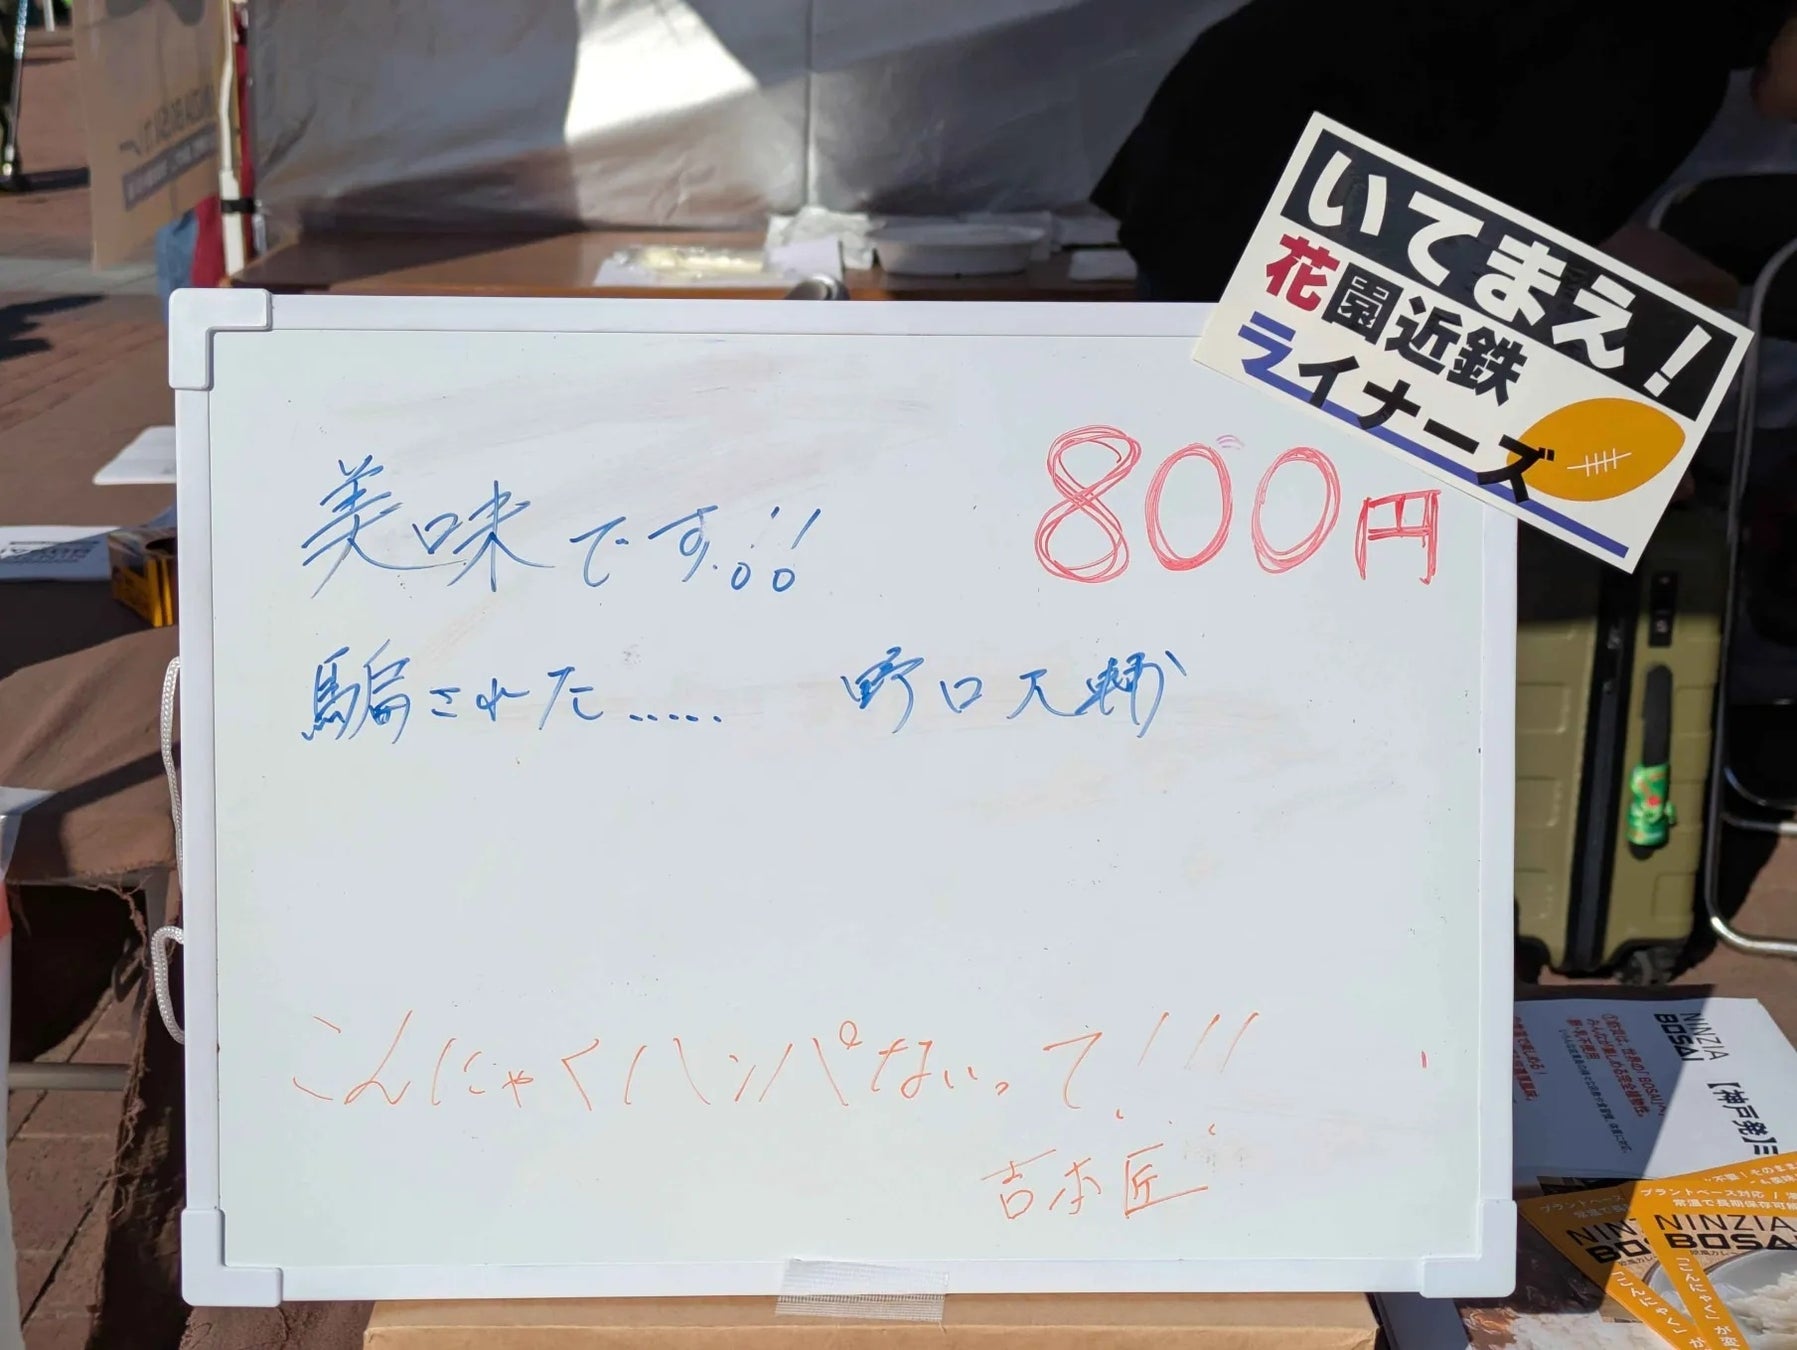 いてまえ！
花園近鉄
ライナーズ
800円
美味です!!
騙された..... 野口大輔
こんにゃくハンパないって!!!
吉本匠
NINZIA
BOSAI
【神戸発】
プラントベース対応
常温で長期保存可能
NINZIA
BOSAI
「こんにゃく」が